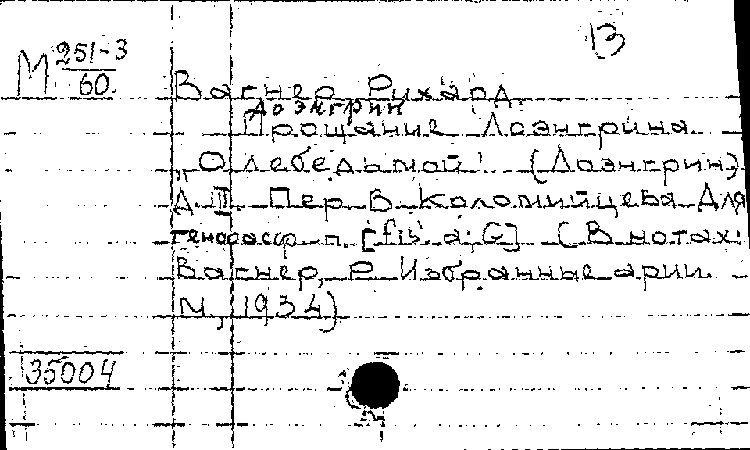 13
М 251-3
60.
Вагнер, Рихард.
Лоэнгрин
Прощание Лоэнгрина
„О лебедь мой! (Лоэнгрин)
Д. III. Пер. В. Коломийцева Для
тенора с ф-п. [fis-a; G] (В нотах:
Вагнер, Р. Избранные арии.
М., 1934)
35004